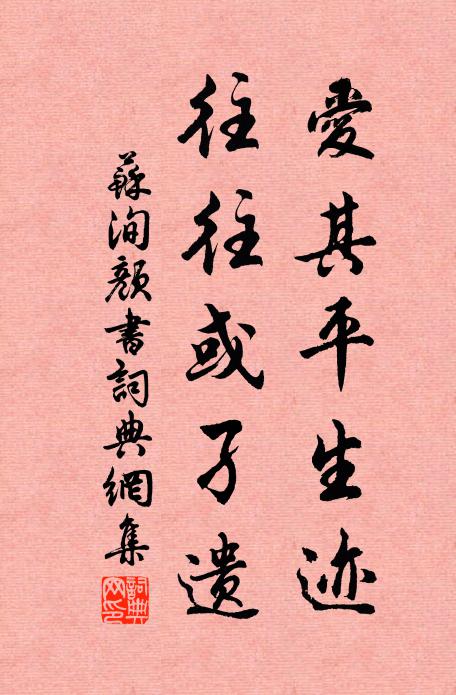 愛其平生迹
往往或孑遺
蘇洵顏書詞典網集
詞典網印